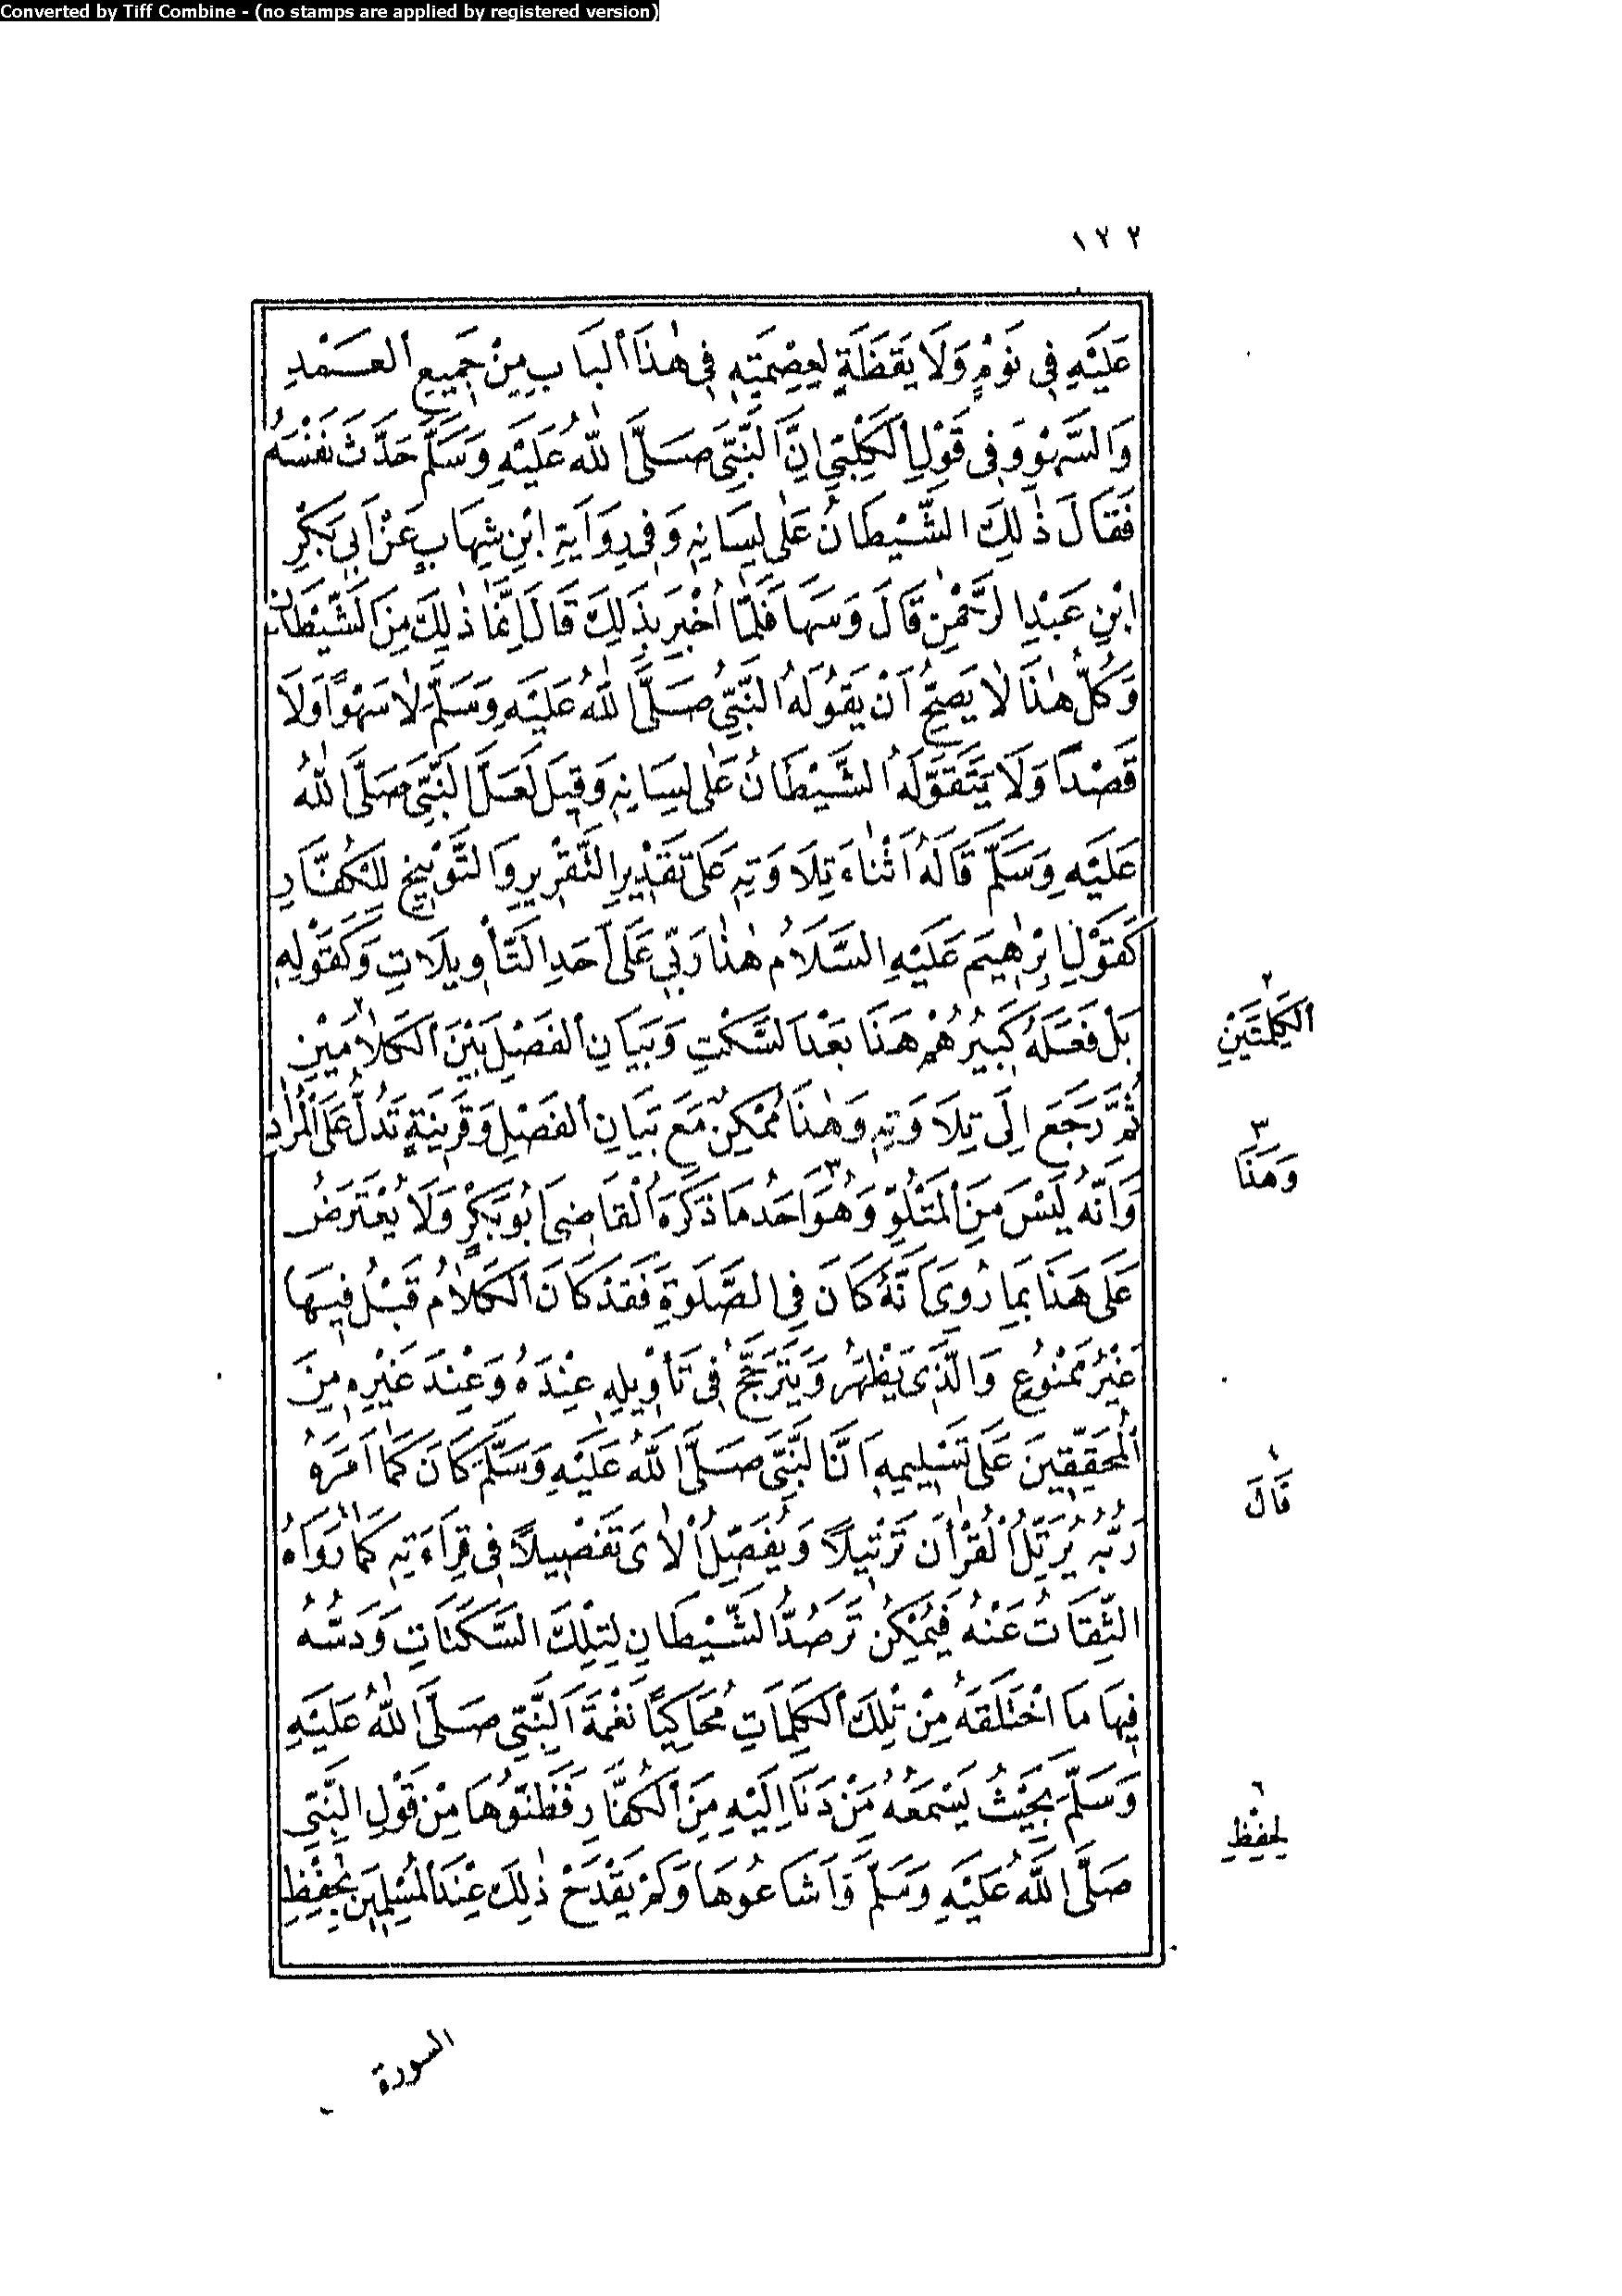 Converted by Tiff Combine - (no stamps are applied by registered version)
١٢٢
عَلَيْهِ فِي نَوْمٍ وَلَا يَقَظَةٍ لِعِصْمَتِهِ فِي هٰذَا الْبَابِ مِنْ جَمِيعِ الْعَمْدِ
وَالسَّهْوِ وَفِي قَوْلِ الْكَلْبِيِّ إِنَّ النَّبِيَّ صَلَّى اللهُ عَلَيْهِ وَسَلَّمَ حَدَّثَ نَفْسَهُ
فَقَالَ ذٰلِكَ الشَّيْطَانُ عَلَى لِسَانِهِ وَفِي رِوَايَةِ ابْنِ شِهَابٍ عَنْ أَبِي بَكْرِ
ابْنِ عَبْدِ الرَّحْمٰنِ قَالَ وَسَهَا فَلَمَّا أُخْبِرَ بِذٰلِكَ قَالَ إِنَّمَا ذٰلِكَ مِنَ الشَّيْطَانِ
وَكُلُّ هٰذَا لَا يَصِحُّ أَنْ يَقُولَهُ النَّبِيُّ صَلَّى اللهُ عَلَيْهِ وَسَلَّمَ لَا سَهْوًا وَلَا
قَصْدًا وَلَا يَتَقَوَّلَهُ الشَّيْطَانُ عَلَى لِسَانِهِ وَقِيلَ لَعَلَّ النَّبِيَّ صَلَّى اللهُ
عَلَيْهِ وَسَلَّمَ قَالَهُ أَثْنَاءَ تِلَاوَتِهِ عَلَى تَقْدِيرِ التَّقْرِيرِ وَالتَّوْبِيخِ لِلْكُفَّارِ
كَقَوْلِ إِبْرٰهِيمَ عَلَيْهِ السَّلَامُ هٰذَا رَبِّي عَلَى أَحَدِ التَّأْوِيلَاتِ وَكَقَوْلِهِ
بَلْ فَعَلَهُ كَبِيرُهُمْ هَذَا بَعْدَ السَّكْتِ وَبَيَانِ الْفَصْلِ بَيْنَ الْكَلَامَيْنِ ٢
ثُمَّ رَجَعَ إِلَى تِلَاوَتِهِ وَهٰذَا مُمْكِنٌ مَعَ بَيَانِ الْفَصْلِ وَقَرِينَةٍ تَدُلُّ عَلَى الْمُرَادِ
وَأَنَّهُ لَيْسَ مِنَ الْمَتْلُوِّ وَهُوَ ٣ أَحَدُ مَا ذَكَرَهُ الْقَاضِي أَبُو بَكْرٍ وَلَا يُعْتَرَضُ
عَلَى هَذَا بِمَا رُوِيَ أَنَّهُ كَانَ فِي الصَّلٰوةِ فَقَدْ كَانَ الْكَلَامُ قَبْلُ فِيهَا
غَيْرَ مَمْنُوعٍ وَالَّذِي يَظْهَرُ وَيَتَرَجَّحُ فِي تَأْوِيلِهِ عِنْدَهُ وَعِنْدَ غَيْرِهِ مِنَ
الْمُحَقِّقِينَ عَلَى تَسْلِيمِهِ أَنَّ النَّبِيَّ صَلَّى اللهُ عَلَيْهِ وَسَلَّمَ كَانَ كَمَا أَمَرَهُ
رَبُّهُ يُرَتِّلُ الْقُرْاٰنَ تَرْتِيلًا وَيُفَصِّلُ الْاٰيَ تَفْصِيلًا فِي قِرَاءَتِهِ كَمَا رَوَاهُ
الثِّقَاتُ عَنْهُ فَيُمْكِنُ تَرَصُّدُ الشَّيْطَانِ لِتِلْكَ السَّكَتَاتِ وَدَسُّهُ
فِيهَا مَا اخْتَلَقَهُ مِنْ تِلْكَ الْكَلِمَاتِ مُحَاكِيًا نَغْمَةَ النَّبِيِّ صَلَّى اللهُ عَلَيْهِ
وَسَلَّمَ بِحَيْثُ يَسْمَعُهُ مَنْ دَنَا إِلَيْهِ مِنَ الْكُفَّارِ فَظَنُّوهَا مِنْ قَوْلِ النَّبِيِّ
صَلَّى اللهُ عَلَيْهِ وَسَلَّمَ وَأَشَاعُوهَا وَلَمْ يَقْدَحْ ذٰلِكَ عِنْدَ الْمُسْلِمِينَ بِحِفْظِ
٢
الْكَلِمَتَيْنِ
٣
وَهَذَا
٤
قَالَ
٦
لِحِفْظِ
السورة